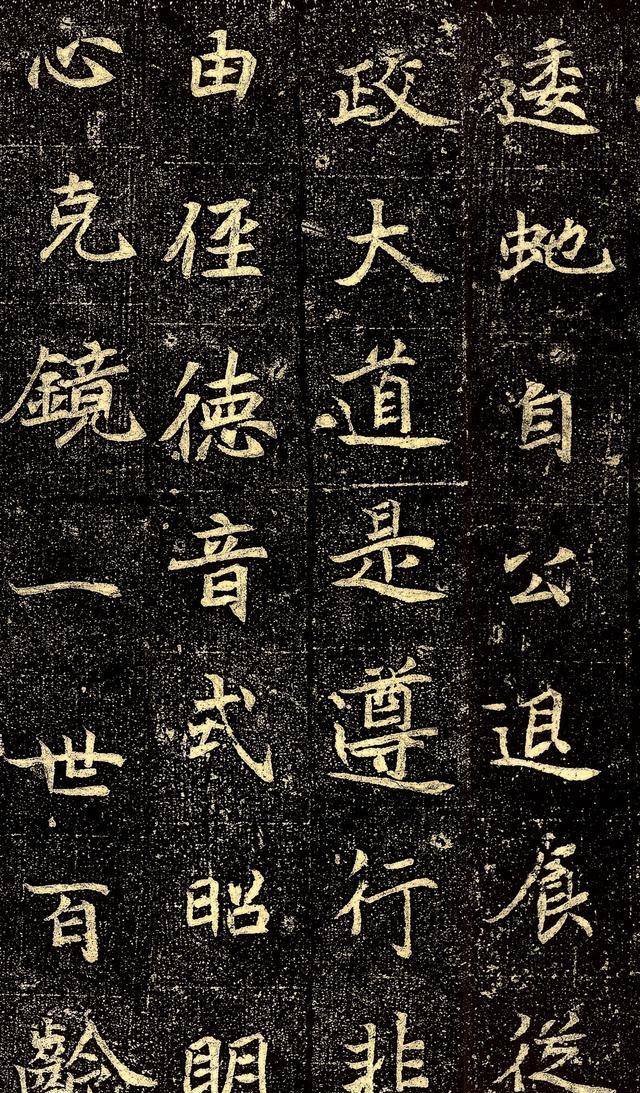 逶虵自公退食從
政大道是遵行非
由俓徳音式昭明
心克鏡一世百齡